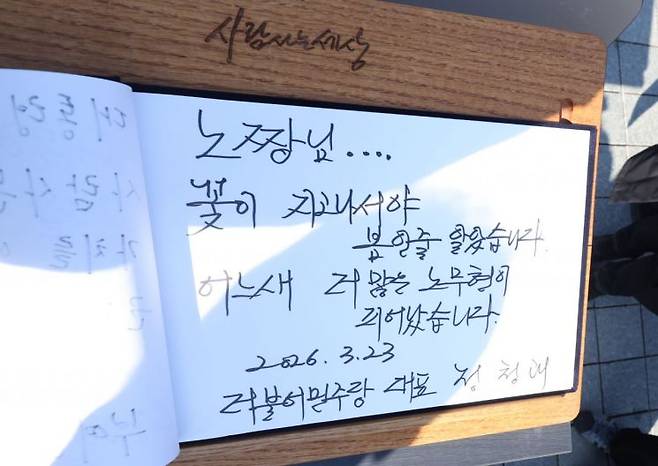 사람사는세상
노짱님....
꽃이 지고나서야
봄인줄 알았습니다.
어느새 더 많은 노무현이
피어났습니다.
2026. 3. 23
더불어민주당 대표 정청래